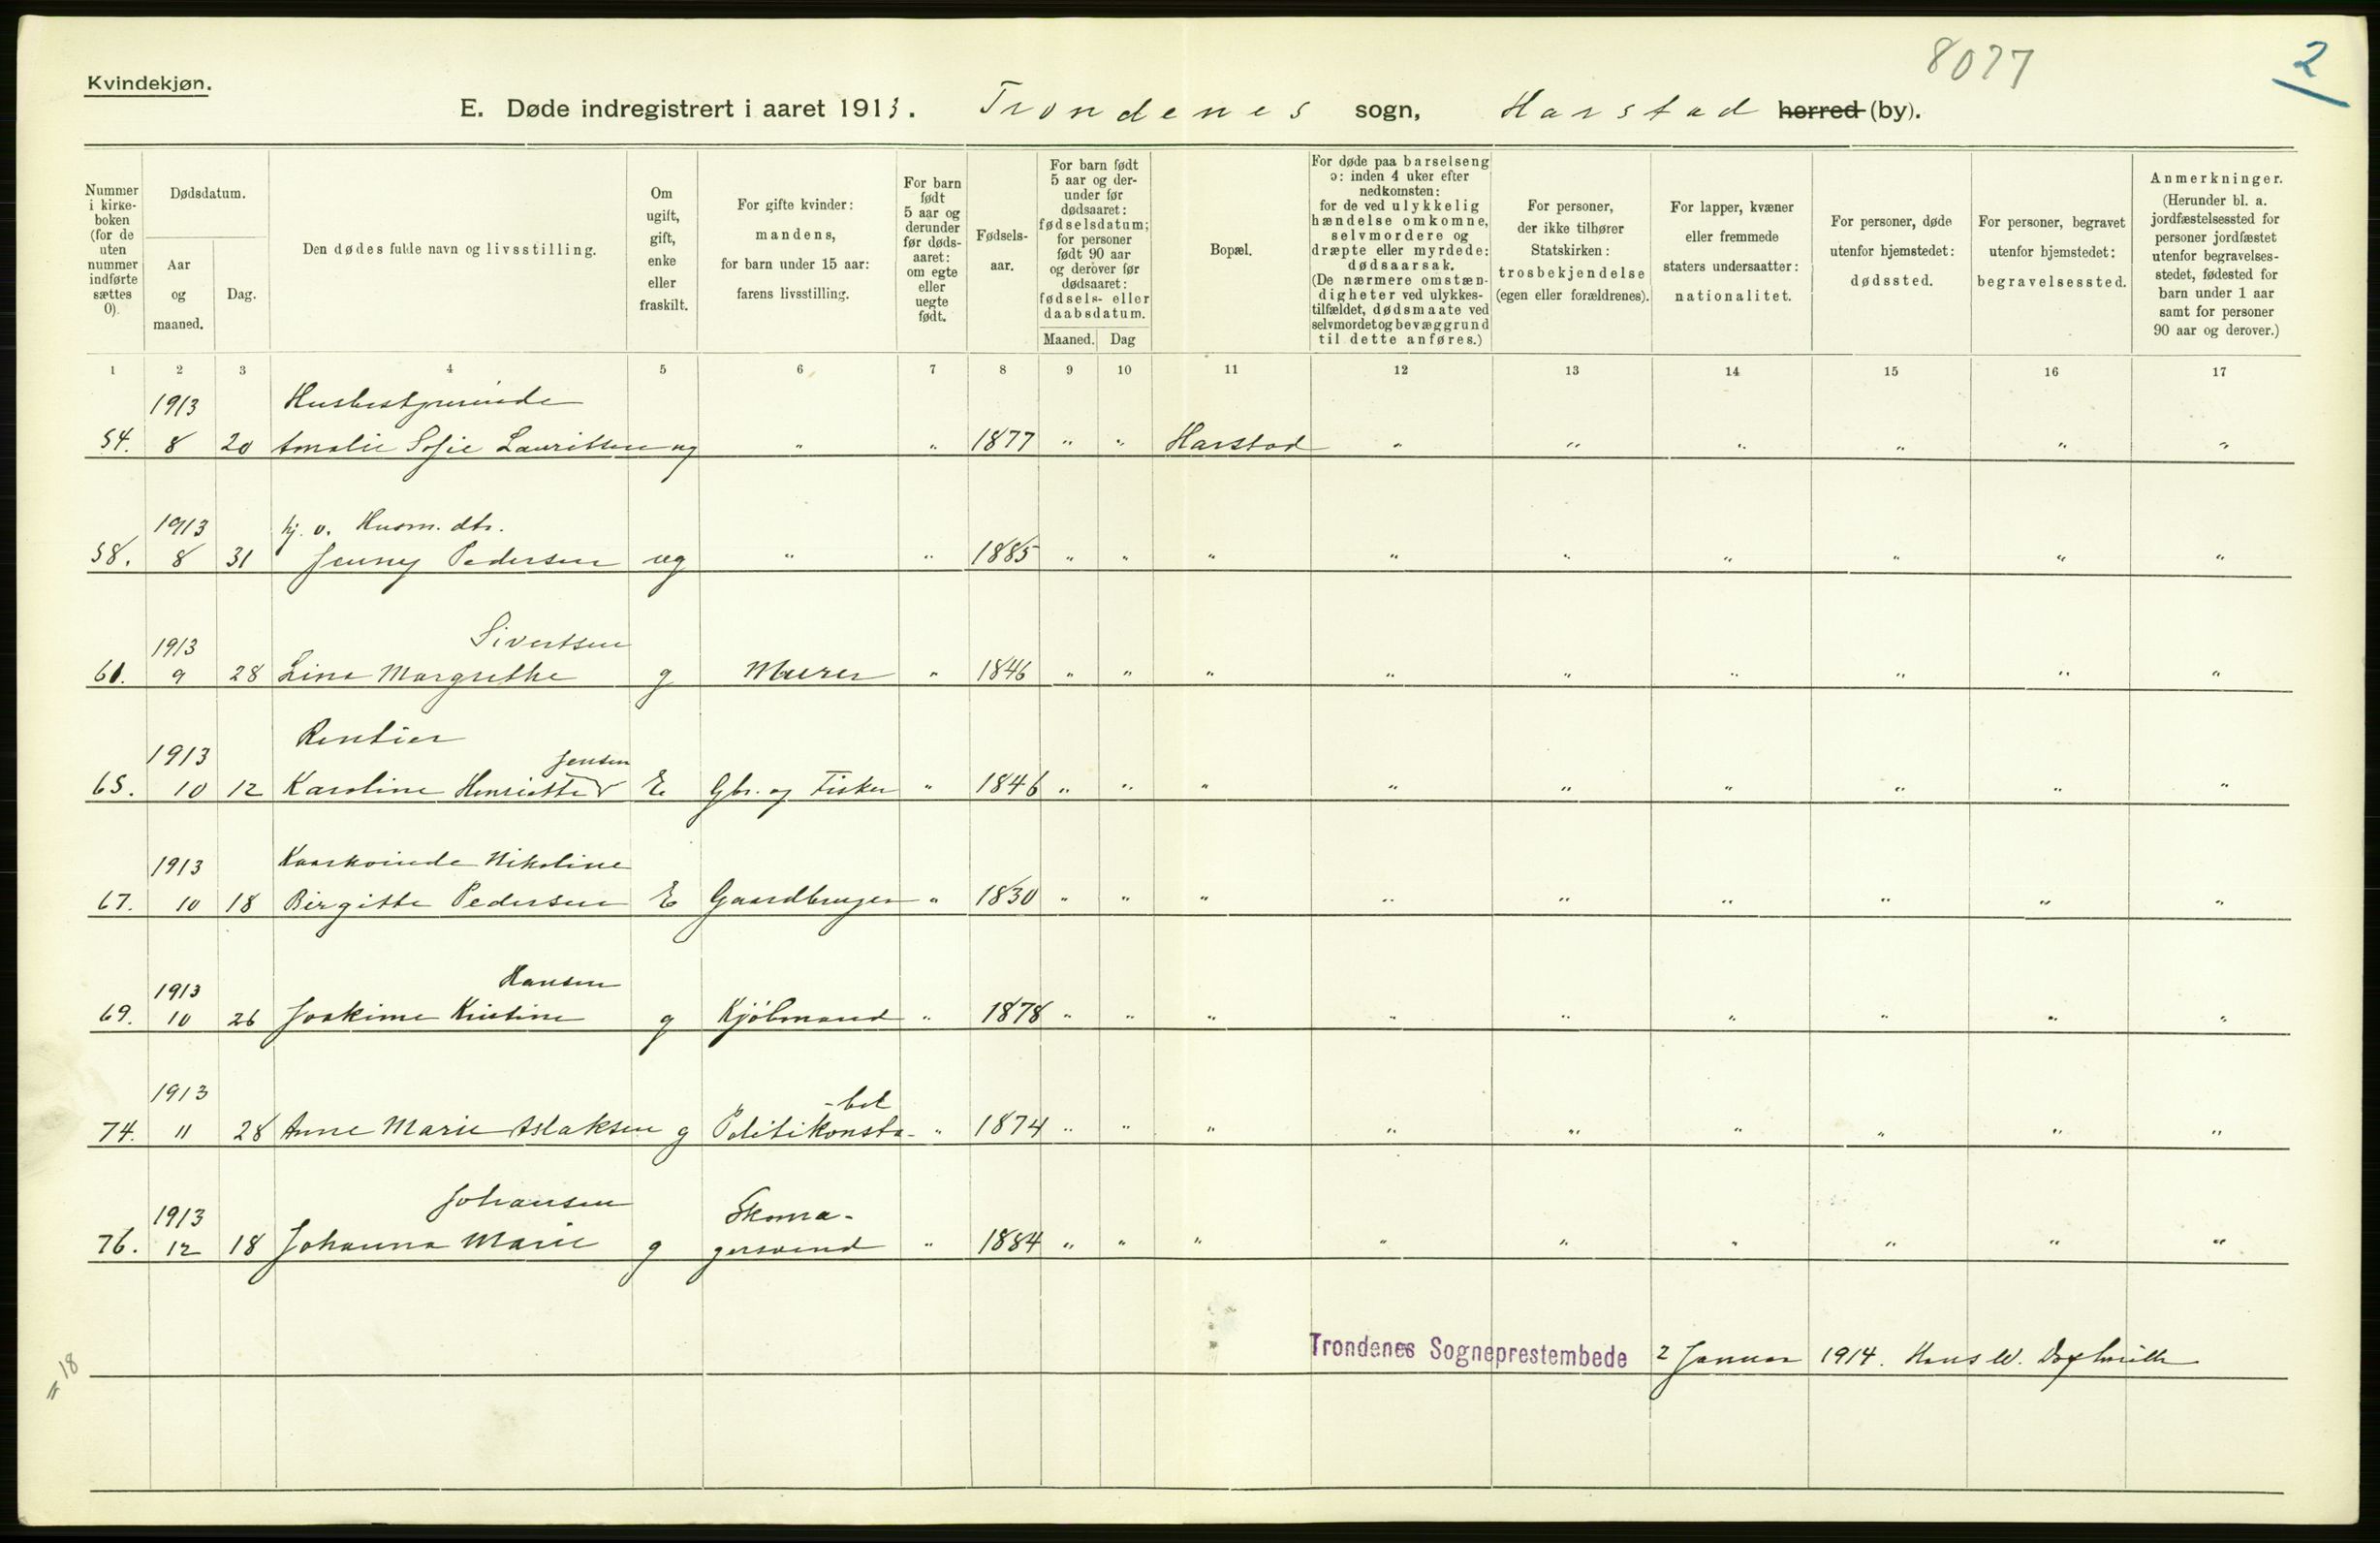 8077
2
Kvindekjøn.
E. Døde indregistrert i aaret 1913. Trondenes sogn, Harstad herred (by).
Nummer i kirkeboken (for de uten nummer indførte sættes 0).
Dødsdatum.
Aar og maaned.
Dag.
Den dødes fulde navn og livsstilling.
Om ugift, gift, enke eller fraskilt.
For gifte kvinder: mandens, for barn under 15 aar: farens livsstilling.
For barn født 5 aar og derunder før dødsaaret: om egte eller uegte født.
Fødselsaar.
For barn født 5 aar og derunder før dødsaaret: fødselsdatum; for personer født 90 aar og derover før dødsaaret: fødsels- eller daabsdatum.
Maaned. Dag
Bopæl.
For døde paa barselseng ɔ: inden 4 uker efter nedkomsten: for de ved ulykkelig hændelse omkomne, selvmordere og dræpte eller myrdede: dødsaarsak. (De nærmere omstændigheter ved ulykkestilfældet, dødsmaate ved selvmordet og bevæggrund til dette anføres.)
For personer, der ikke tilhører Statskirken: trosbekjendelse (egen eller forældrenes).
For lapper, kvæner eller fremmede staters undersaatter: nationalitet.
For personer, døde utenfor hjemstedet: dødssted.
For personer, begravet utenfor hjemstedet: begravelsessted.
Anmerkninger. (Herunder bl. a. jordfæstelsessted for personer jordfæstet utenfor begravelsesstedet, fødested for barn under 1 aar samt for personer 90 aar og derover.)
1 2 3 4 5 6 7 8 9 10 11 12 13 14 15 16 17
1913 Husbestyrerinde
54. 8 20 Amalie Sofie Lauritsen ug " " 1877 " " Harstad " " " " " "
1913 hj. v. Husm. dtr.
58. 8 31 Jenny Pedersen ug " " 1885 " " " " " " " " "
1913 Sivertsen
61. 9 28 Lina Margrethe g Murer " 1846 " " " " " " " " "
1913 Rentier Jensen
65. 10 12 Karoline Henriette E Gbr. og Fisker " 1846 " " " " " " " " "
1913 Kaarkvinde Nikoline
67. 10 18 Birgitte Pedersen E Gaardbruger " 1830 " " " " " " " " "
1913 Hansen
69. 10 26 Joakime Kristine g Kjøbmand " 1878 " " " " " " " " "
1913 -bel
74. 11 28 Anne Marie Aslaksen g Politikonsta- " 1874 " " " " " " " " "
1913 Johansen Skoma-
76. 12 18 Johanna Marie g gersvend " 1884 " " " " " " " " "
Trondenes Sogneprestembede 2 Januar 1914. Hans W.
= 18